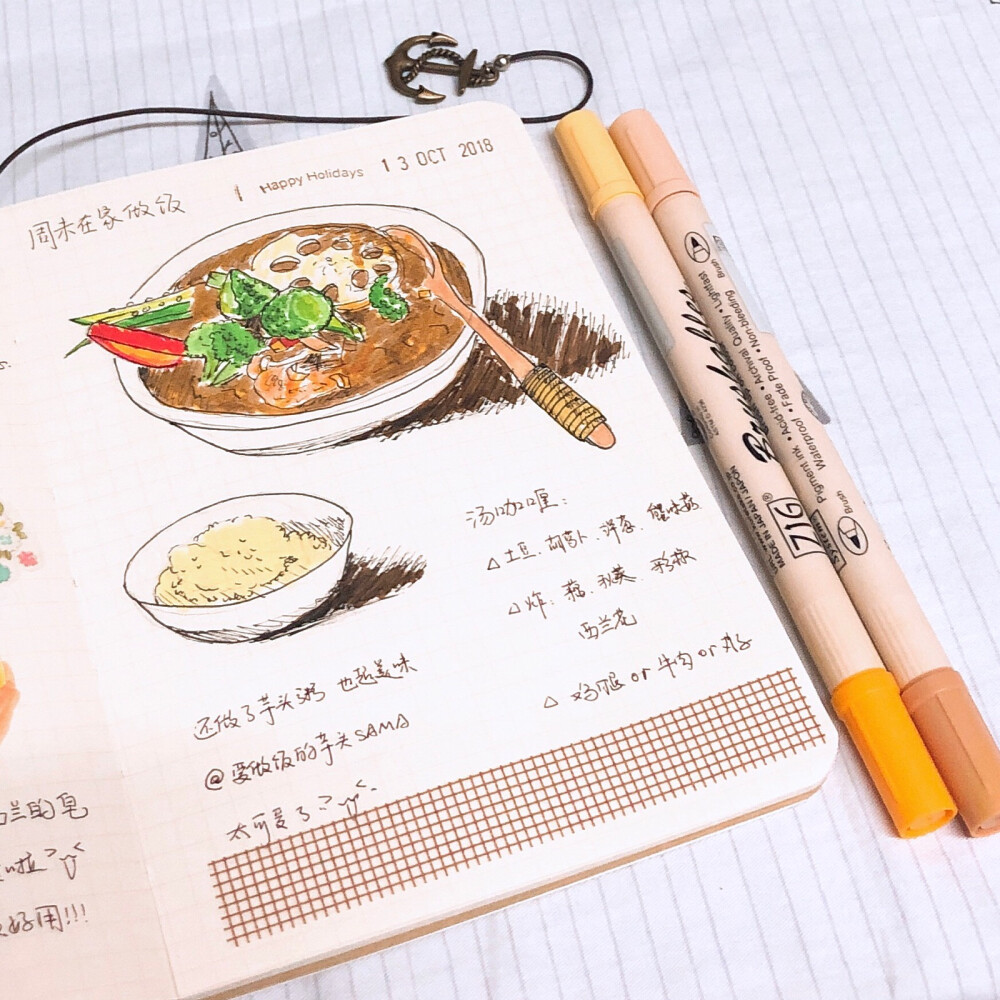 Happy Holidays
13 OCT 2018
周末在家做饭
汤咖喱:
△ 土豆、胡萝卜、洋葱、蟹味菇
△ 炸: 藕、秋葵、彩椒
西兰花
△ 鸡腿 or 牛肉 or 丸子
还做了芋头粥 也超美味
@要做饭的芋头SAMA
太可爱了
兰的皂
啦
好用!!!
Brushables
716
MADE IN JAPAN/JAPON
Brush
Pigment ink • Acid-free • Archival Quality • Lightfast
Waterproof • Fade Proof • Non-bleeding
Brush